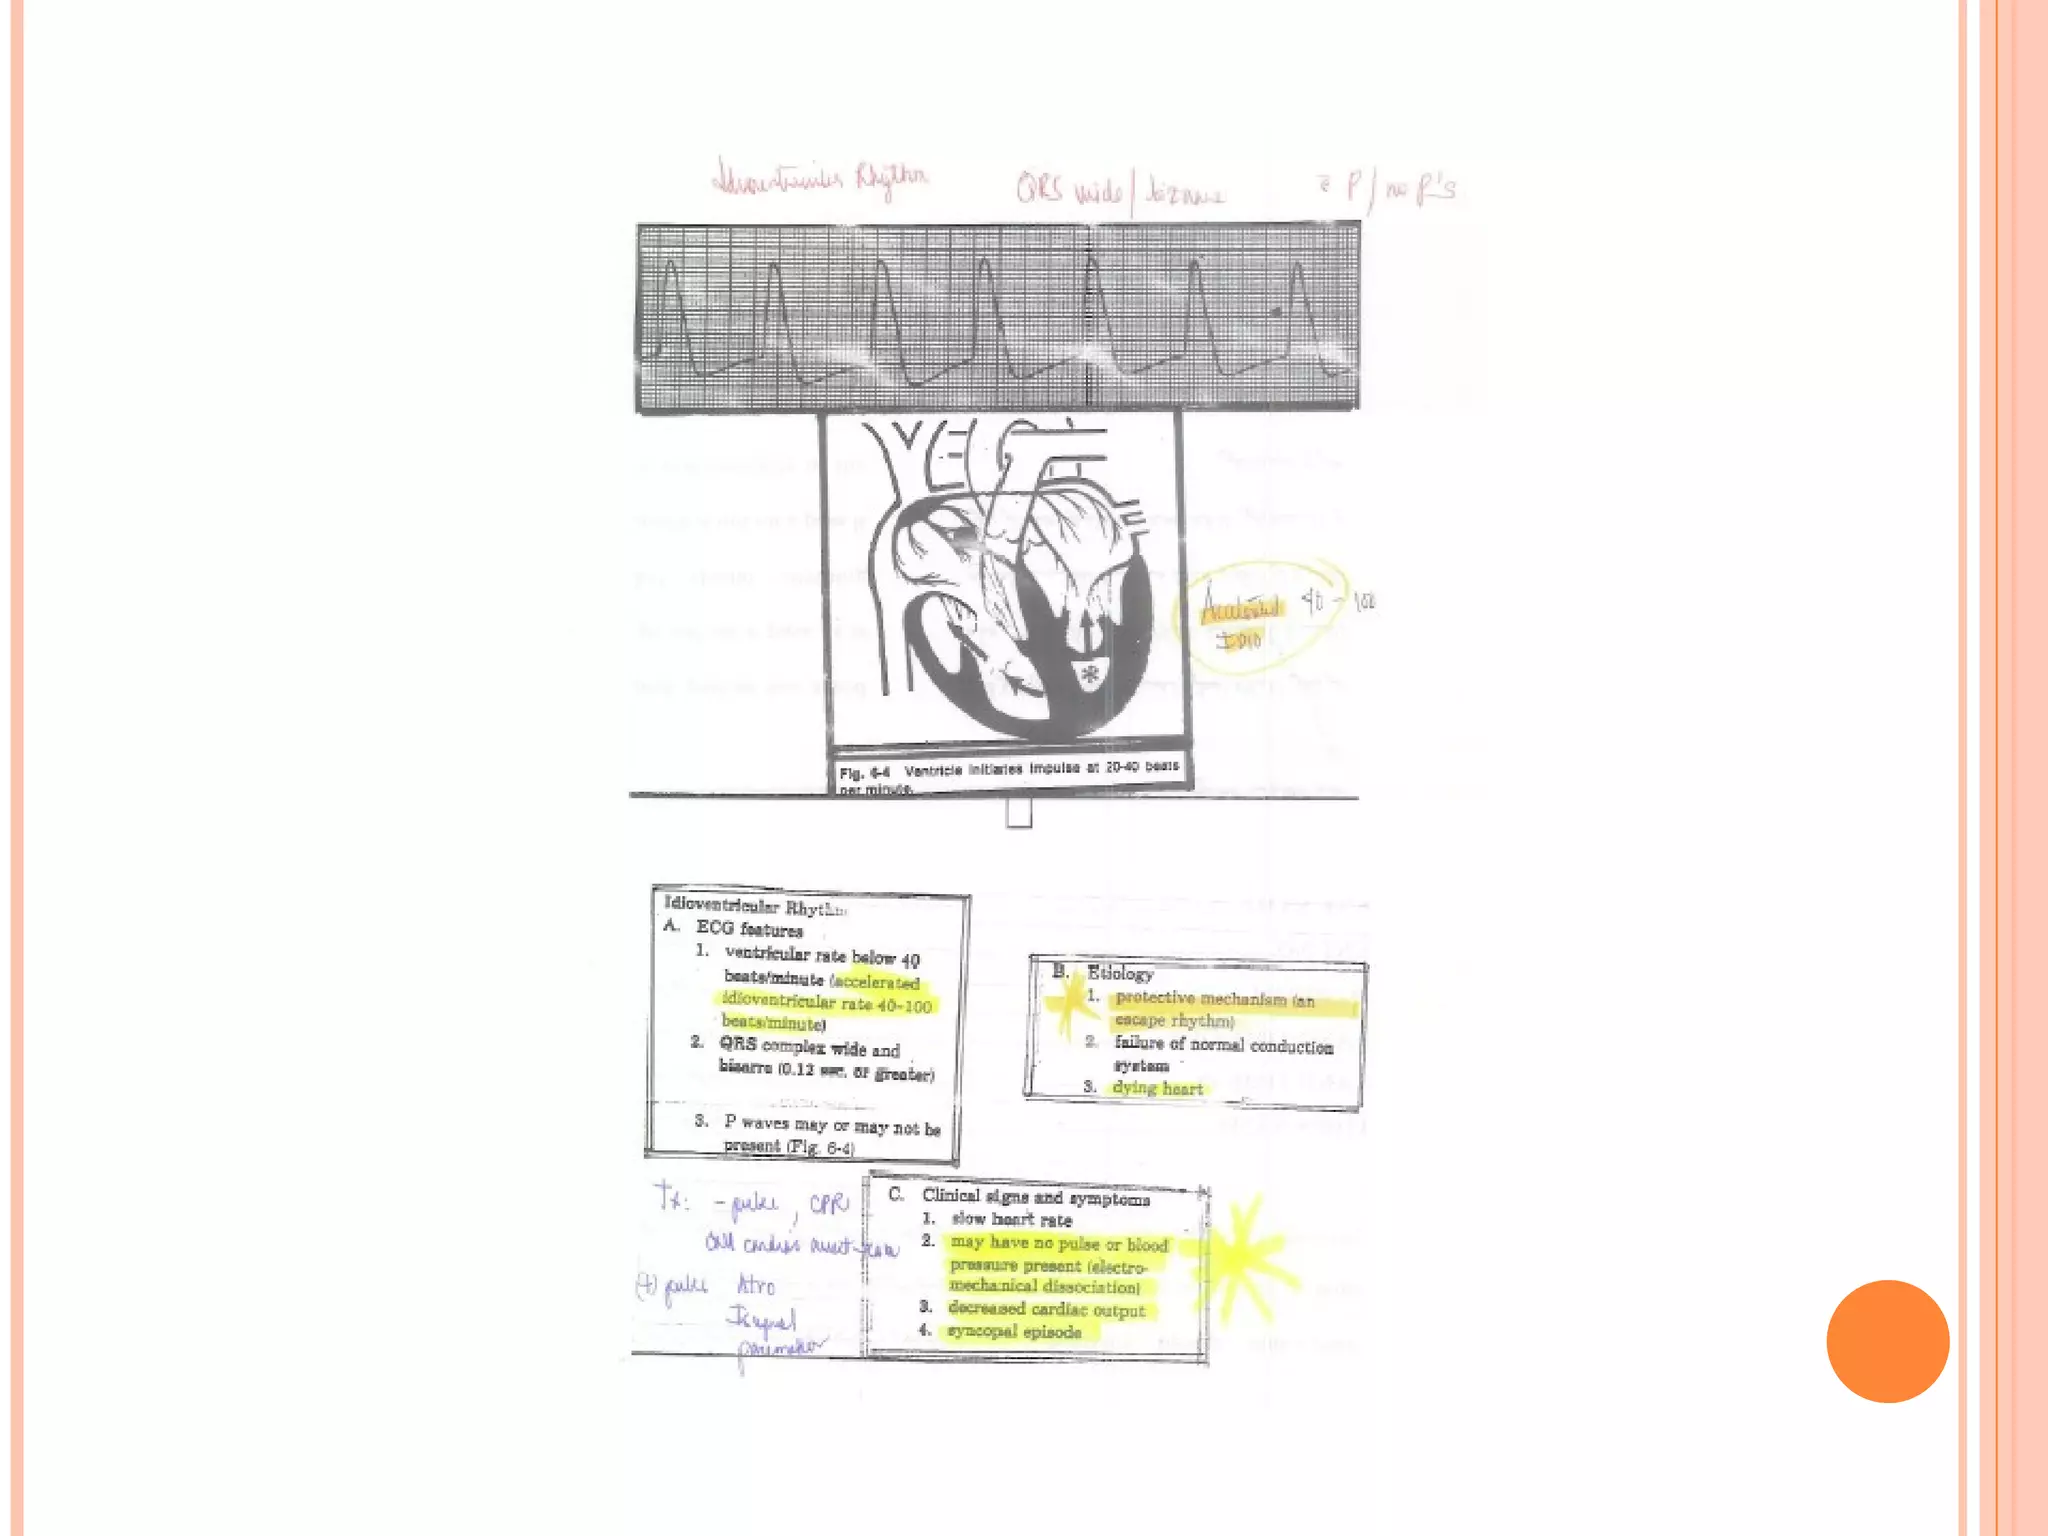 Idioventricular Rhythm QRS wide/bizarre c̄ P/no P's
Accelerated 40 - 100
IDIO
Fig. 6-4 Ventricle initiates impulse at 20-40 beats
per minute.
Idioventricular Rhythm
A. ECG features
1. ventricular rate below 40
beats/minute (accelerated
idioventricular rate 40-100
beats/minute)
2. QRS complex wide and
bizarre (0.12 sec. or greater)
3. P waves may or may not be
present (Fig. 6-4)
B. Etiology
1. protective mechanism (an
escape rhythm)
2. failure of normal conduction
system
3. dying heart
Tx: - pulse, CPR
call cardiac arrest
(+) pulse Atro
Isuprel
pacemaker
C. Clinical signs and symptoms
1. slow heart rate
2. may have no pulse or blood
pressure present (electro-
mechanical dissociation)
3. decreased cardiac output
4. syncopal episode